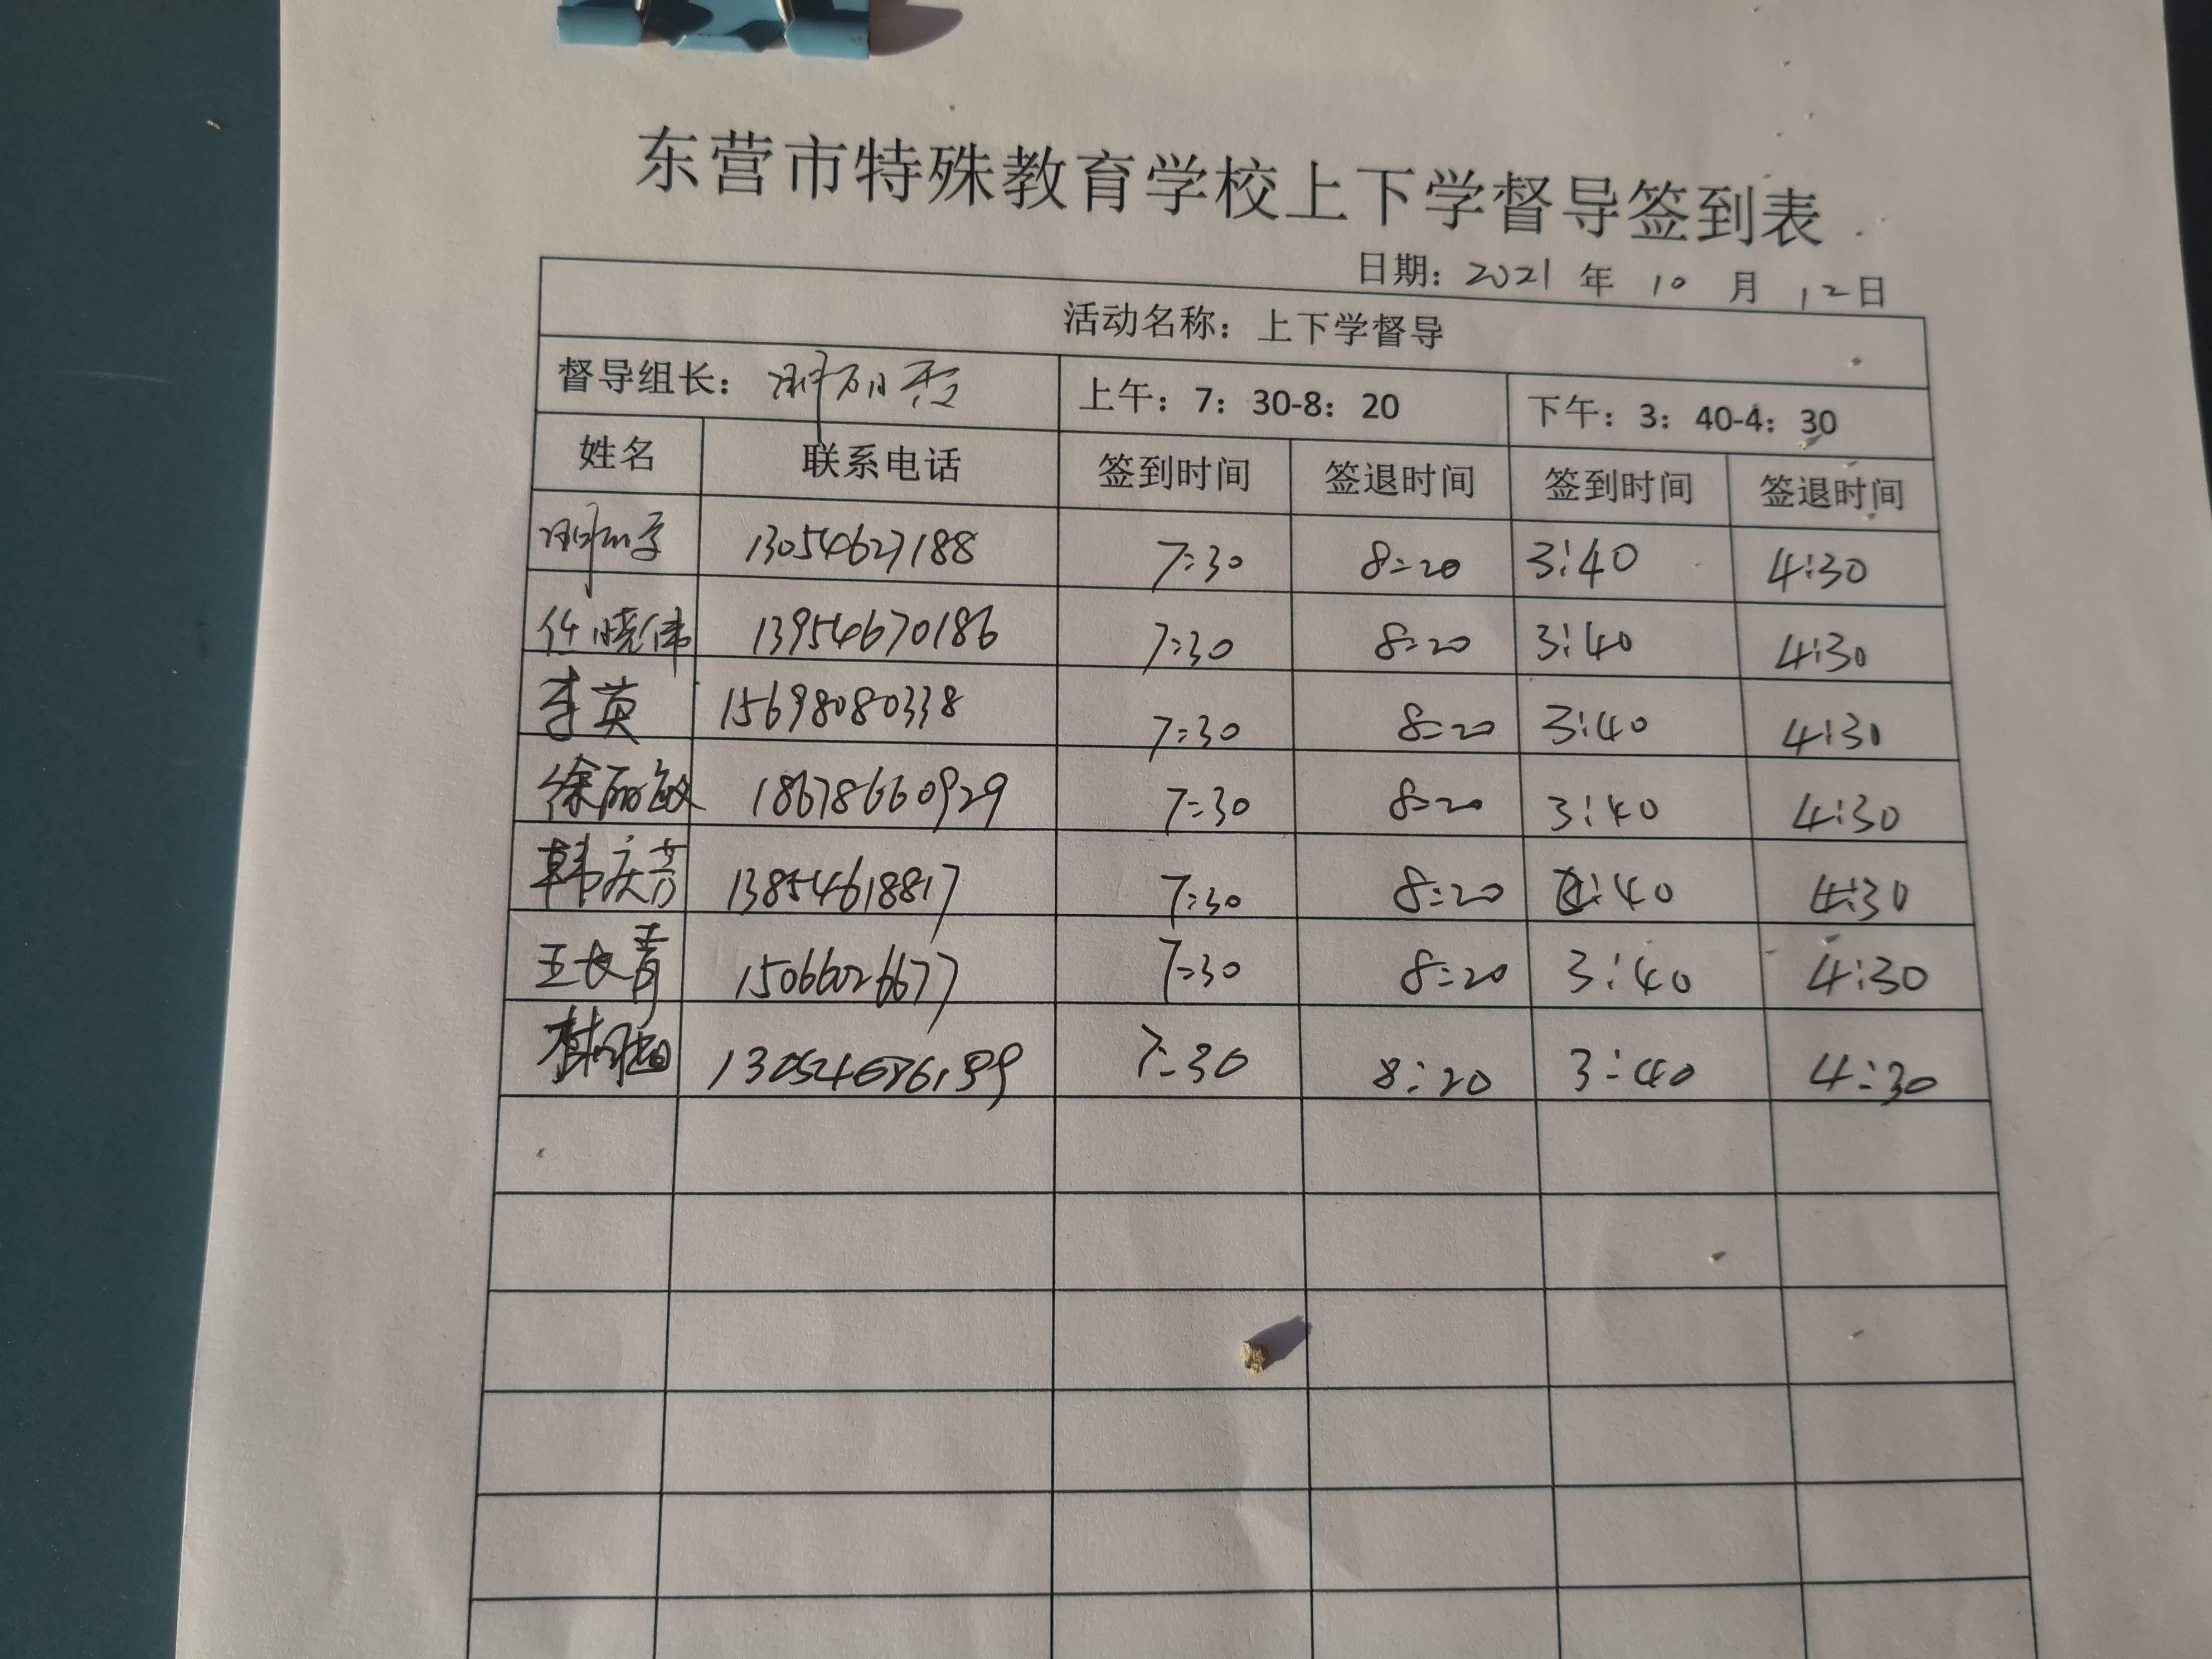 东营市特殊教育学校上下学督导签到表
日期：2021 年 10 月 12日
活动名称：上下学督导
督导组长： 上午：7：30-8：20 下午：3：40-4：30
姓名 联系电话 签到时间 签退时间 签到时间 签退时间
13054627188 7:30 8:20 3:40 4:30
任晓伟 13954670186 7:30 8:20 3:40 4:30
李英 15698080338 7:30 8:20 3:40 4:30
徐丽敏 18678660929 7:30 8:20 3:40 4:30
韩庆芳 13854618817 7:30 8:20 :40 4:30
王长青 15066026677 7:30 8:20 3:40 4:30
7:30 8:20 3:40 4:30